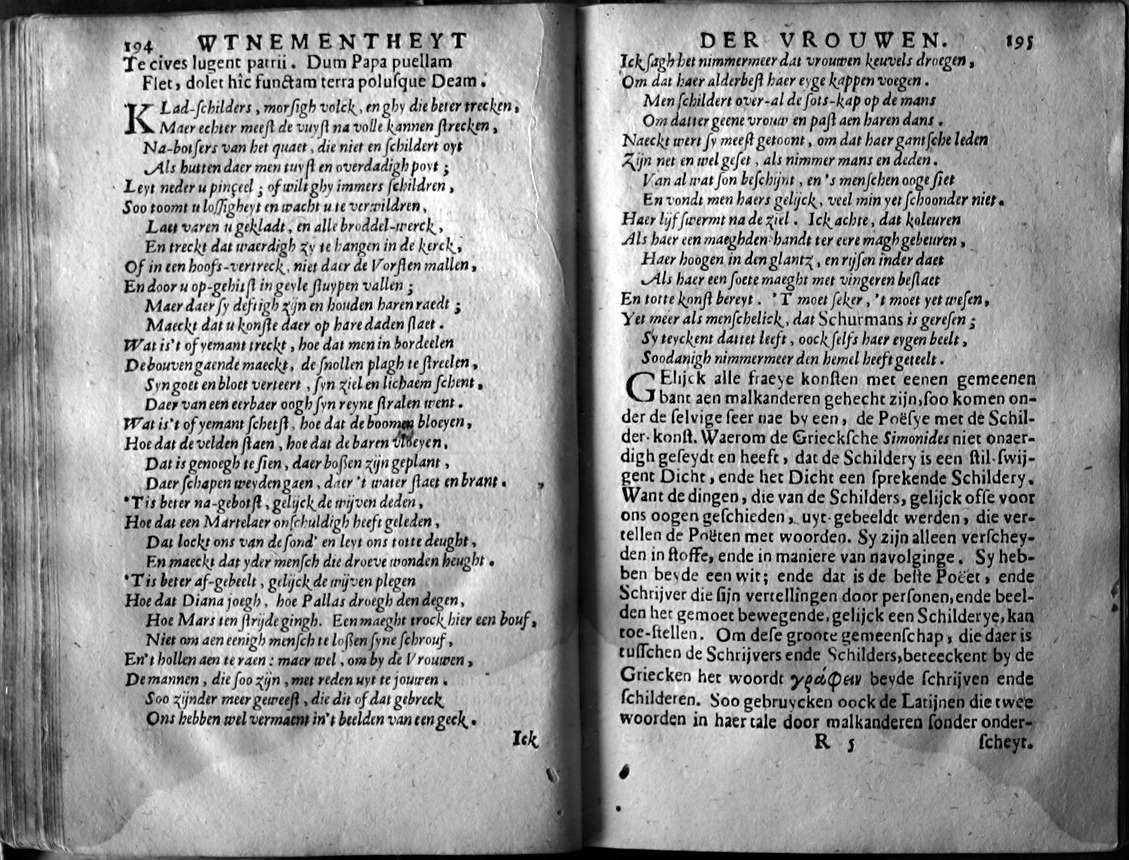 194 WTNEMENTHEYT
Te cives lugent patrii. Dum Papa puellam
Flet, dolet hîc functam terra polusque Deam.
KLad-schilders, morsigh volck, en ghy die beter trecken,
Maer echter meest de vuyst na volle kannen strecken,
Na-botsers van het quaet, die niet en schildert oyt
Als hutten daer men tuyst en overdadigh poyt;
Leyt neder u pinçeel; of wilt ghy immers schildren,
Soo toomt u lossigheyt en wacht u te verwildren,
Laet varen u gekladt, en alle broddel-werck,
En treckt dat waerdigh zy te hangen in de kerck,
Of in een hoofs-vertreck, niet daer de Vorsten mallen,
En door u op-gehitst in geyle stuypen vallen;
Maer daer sy deftigh zijn en houden haren raedt;
Maeckt dat u konste daer op hare daden slaet.
Wat is't of yemant treckt, hoe dat men in bordeelen
De bouven gaende maeckt, de snollen plagh te streelen,
Syn goet en bloet verteert, syn ziel en lichaem schent,
Daer van een eerbaer oogh syn reyne stralen went.
Wat is't of yemant schetst, hoe dat de boomen bloeyen,
Hoe dat de velden staen, hoe dat de baren vloeyen,
Dat is genoegh te sien, daer boßen zijn geplant,
Daer schapen weyden gaen, daer 't water slaet en brant.
'Tis beter na-gebotst, gelijck de wijven deden,
Hoe dat een Martelaer onschuldigh heeft geleden,
Dat lockt ons van de sond' en leyt ons totte deught,
En maeckt dat yder mensch die droeve wonden heught.
'Tis beter af-gebeelt, gelijck de wijven plegen
Hoe dat Diana joegh, hoe Pallas droegh den degen,
Hoe Mars ten strijde gingh. Een maeght trock hier een bouf,
Niet om aen eenigh mensch te loßen syne schrouf,
En't hollen aen te raen: maer wel, om by de Vrouwen,
De mannen, die soo zijn, met reden uyt te jouwen.
Soo zijnder meer geweest, die dit of dat gebreck
Ons hebben wel vermaent in't beelden van een geck.
Ick
DER VROUWEN. 195
Ick sagh het nimmermeer dat vrouwen keuvels droegen,
Om dat haer alderbest haer eyge kappen voegen.
Men schildert over-al de sots-kap op de mans
Om datter geene vrouw en past aen haren dans.
Naeckt wert sy meest getoont, om dat haer gantsche leden
Zijn net en wel geset, als nimmer mans en deden.
Van al wat son beschijnt, en 's menschen ooge siet
En vondt men haers gelijck, veel min yet schoonder niet.
Haer lijf swermt na de ziel. Ick achte, dat koleuren
Als haer een maeghden-handt ter eere magh gebeuren,
Haer hoogen in den glantz, en rijsen inder daet
Als haer een soete maeght met vingeren beslaet
En totte konst bereyt. 'T moet seker, 't moet yet wesen,
Yet meer als menschelick, dat Schurmans is geresen;
Sy teyckent dattet leeft, oock selfs haer eygen beelt,
Soodanigh nimmermeer den hemel heeft geteelt.
GElijck alle fraeye konsten met eenen gemeenen
bant aen malkanderen gehecht zijn, soo komen on-
der de selvige seer nae by een, de Poësye met de Schil-
der-konst. Waerom de Griecksche Simonides niet onaer-
digh geseydt en heeft, dat de Schildery is een stil-swij-
gent Dicht, ende het Dicht een sprekende Schildery.
Want de dingen, die van de Schilders, gelijck ofse voor
ons oogen geschieden, uyt-gebeeldt werden, die ver-
tellen de Poëten met woorden. Sy zijn alleen verschey-
den in stoffe, ende in maniere van navolginge. Sy heb-
ben beyde een wit; ende dat is de beste Poëet, ende
Schrijver die sijn vertellingen door personen, ende beel-
den het gemoet bewegende, gelijck een Schilderye, kan
toe-stellen. Om dese groote gemeenschap, die daer is
tusschen de Schrijvers ende Schilders, beteeckent by de
Griecken het woordt γράφειν beyde schrijven ende
schilderen. Soo gebruycken oock de Latijnen die twee
woorden in haer tale door malkanderen sonder onder-
R 5 scheyt.